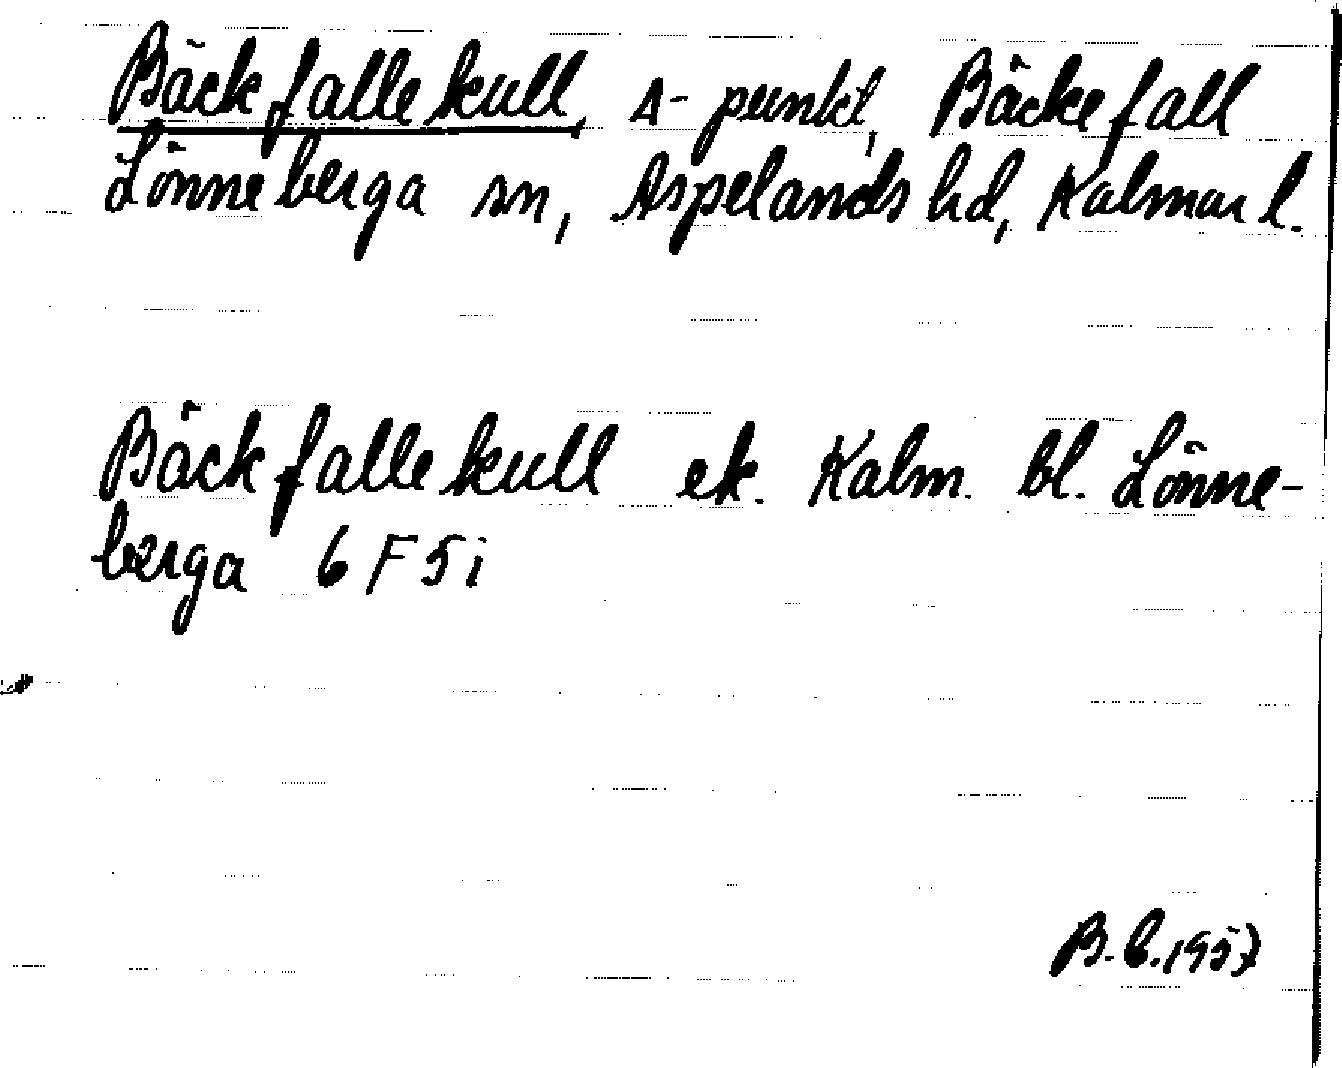 Bäckfallekull, Δ-punkt, Bäckefall
Lönneberga sn, Aspelands hd, Kalmar l.
Bäckfallekull ek. Kalm. bl. Lönne-
berga 6 F 5 i
B. C. 1957